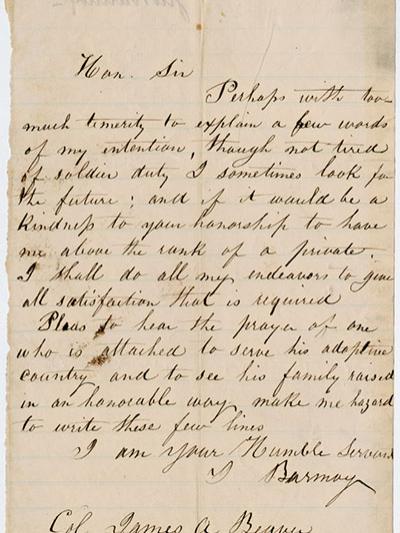 Hon. Sir
Perhaps with too
much temerity to explain a few words
of my intention, though not tired
of soldier duty I sometimes look for
the future; and if it would be a
kindness to your honorship to have
me above the rank of a private.
I shall do all my endeavors to give
all satisfaction that is required
Pleas to hear the prayer of one
who is attached to serve his adoptive
country and to see his family raised
in an honorable way make me hazard
to write these few lines
I am your Humble Servant
Col. James A Beaver